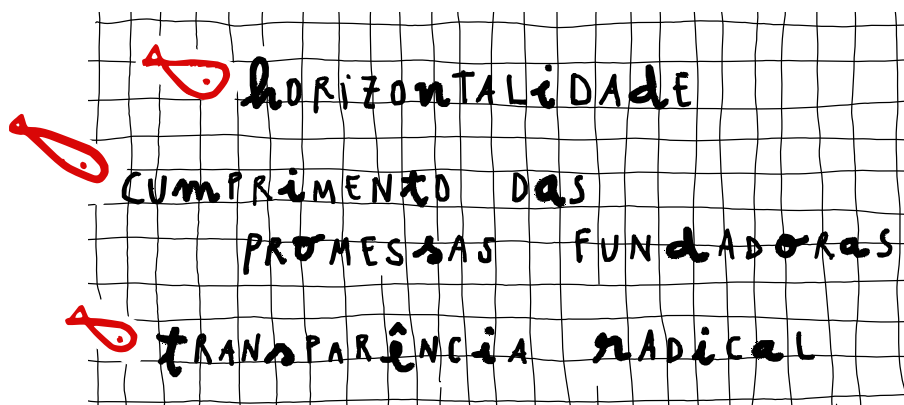 hORiZOnTALiDAdE
CUmPRiMENtO DaS
PROMESsAS FUNdADORaS
tRANsPARêNCiA rADiCaL